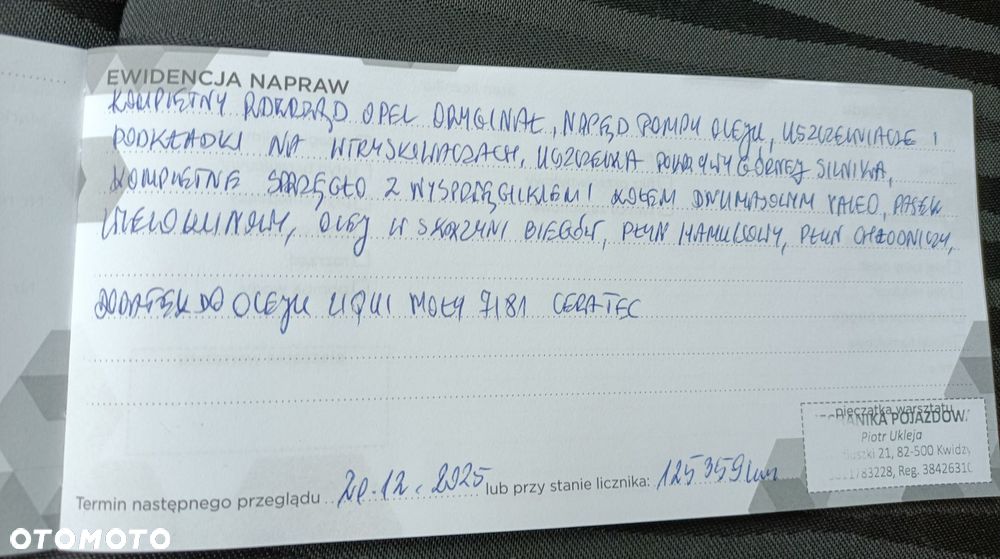 EWIDENCJA NAPRAW
KOMPLETNY ROZRZĄD OPEL ORYGINAŁ, NAPĘD POMPY OLEJU, USZCZELNIACZE I
PODKŁADKI NA WTRYSKIWACZACH, USZCZELKA POKRYWY GÓRNEJ SILNIKA,
KOMPLETNE SPRZĘGŁO Z WYSPRZĘGLIKIEM I KOŁEM DWUMASOWYM VALEO, PASEK
WIELOKLINOWY, OLEJ W SKRZYNI BIEGÓW, PŁYN HAMULCOWY, PŁYN CHŁODNICZY,
DODATEK DO OLEJU LIQUI MOLY 7181 CERATEC
pieczątka warsztatu
ANIKA POJAZDÓW
Piotr Ukleja
21, 82-500 Kwidzy
1783228, Reg. 3842631
Termin następnego przeglądu 20.12.2025 lub przy stanie licznika: 125359 km
OTOMOTO